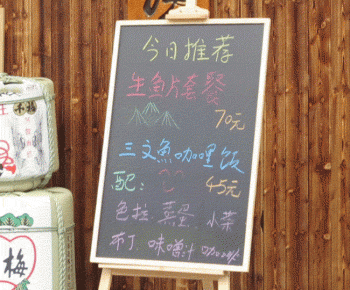 今日推荐
生鱼片套餐
70元
三文魚咖哩饭
配:
45元
色拉 蒸蛋 小菜
布丁 味噌汁
梅